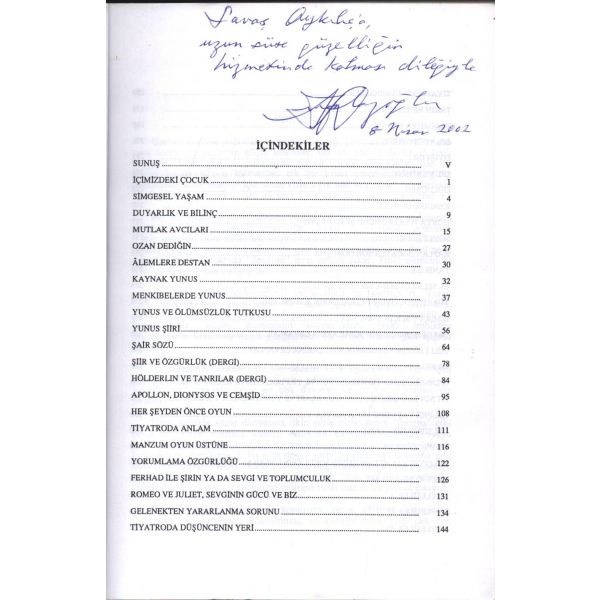 Savaş Aykılıç'a,
uzun süre güzelliğin
hizmetinde kalması dileğiyle
8 Nisan 2002
İÇİNDEKİLER
SUNUŞ V
İÇİMİZDEKİ ÇOCUK 1
SİMGESEL YAŞAM 4
DUYARLIK VE BİLİNÇ 9
MUTLAK AVCILARI 15
OZAN DEDİĞİN 27
ÂLEMLERE DESTAN 30
KAYNAK YUNUS 32
MENKIBELERDE YUNUS 37
YUNUS VE ÖLÜMSÜZLÜK TUTKUSU 43
YUNUS ŞİİRİ 56
ŞAİR SÖZÜ 64
ŞİİR VE ÖZGÜRLÜK (DERGİ) 78
HÖLDERLIN VE TANRILAR (DERGİ) 84
APOLLON, DIONYSOS VE CEMŞİD 95
HER ŞEYDEN ÖNCE OYUN 108
TİYATRODA ANLAM 111
MANZUM OYUN ÜSTÜNE 116
YORUMLAMA ÖZGÜRLÜĞÜ 122
FERHAD İLE ŞİRİN YA DA SEVGİ VE TOPLUMCULUK 126
ROMEO VE JULIET, SEVGİNİN GÜCÜ VE BİZ 131
GELENEKTEN YARARLANMA SORUNU 134
TİYATRODA DÜŞÜNCENİN YERİ 144